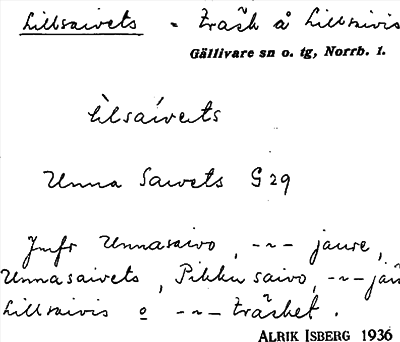 Lillsaivets - träsk å Lillsaivis
Gällivare sn o. tg, Norrb. l.
lìlsáivets
Unna Saivets G 29
Jmfr Unnasaivo, -~- jaure,
Unnasaivets, Pikku saivo, -~- jau
Lillsaivis o -~- träsket.
ALRIK ISBERG 1936